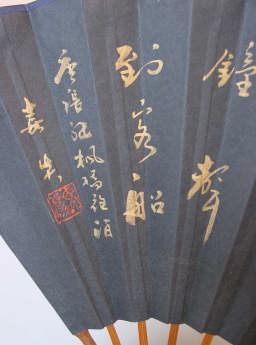 鐘聲
到客船
唐張繼楓橋夜泊